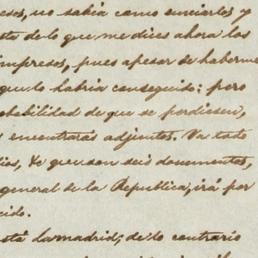 eses, no sabia como enviarlos y
sta de lo que me dices ahora los
impresos, pues apesar de haberme
que lo habria conseguido: pero
obabilidad de que se perdiesen,
s encontrarás adjuntos. Va todo
lios, de que son seis documentos,
general de la Republica, irá por
cido.
stá la madrid; de lo contrario